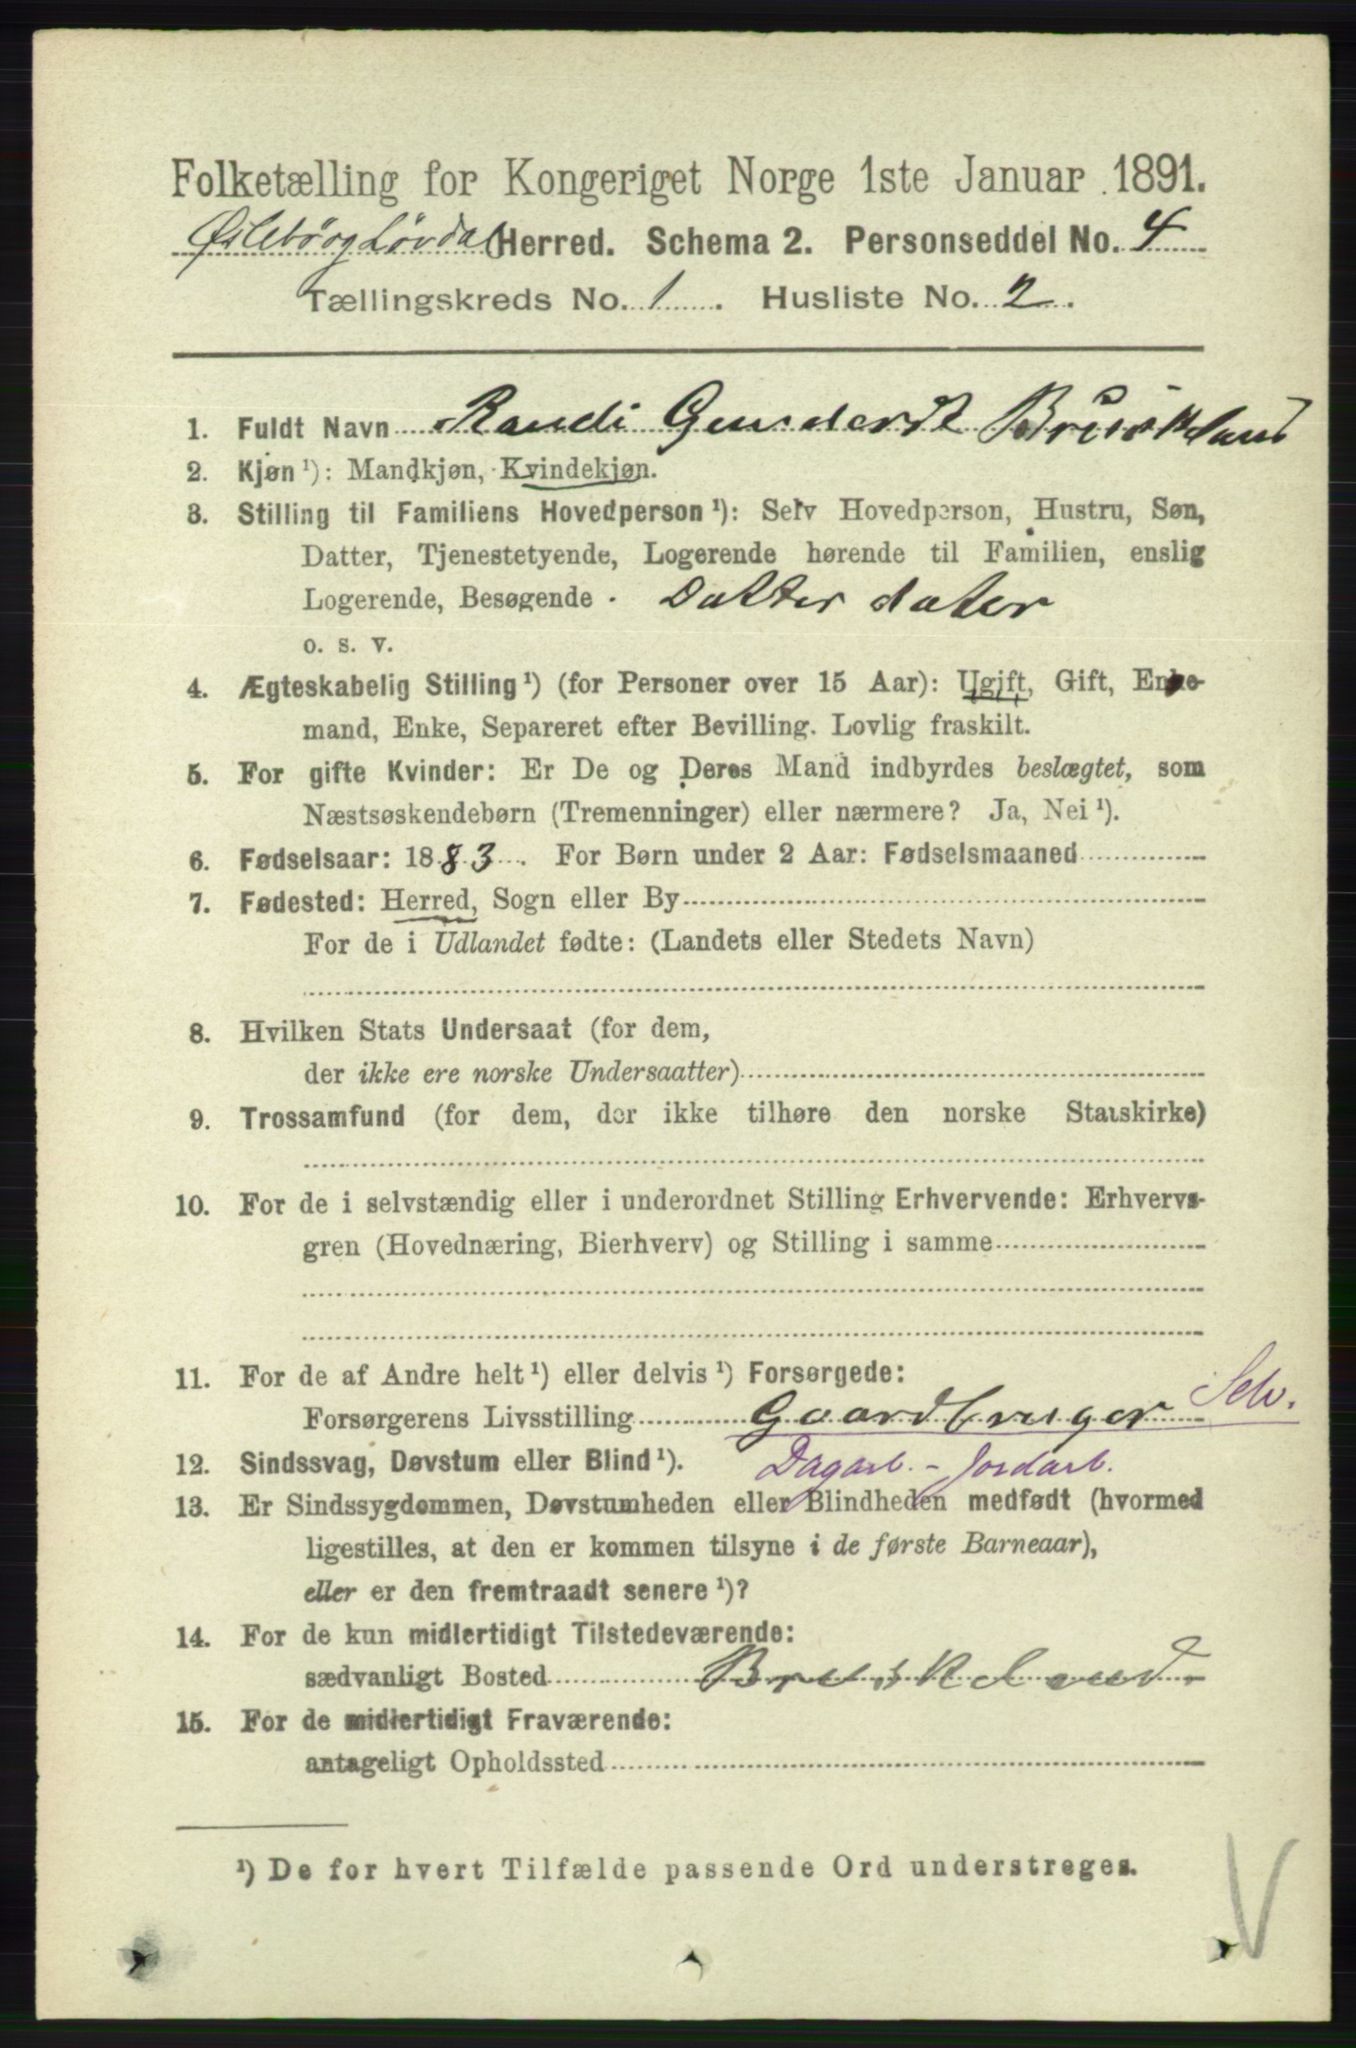 Folketælling for Kongeriget Norge 1ste Januar 1891.
Øslebø og Løvdal Herred. Schema 2. Personseddel No. 4
Tællingskreds No. 1. Husliste No. 2.
1. Fuldt Navn Randi Gundersd Bruskland
2. Kjøn ¹): Mandkjøn, Kvindekjøn.
3. Stilling til Familiens Hovedperson ¹): Selv Hovedperson, Hustru, Søn,
Datter, Tjenestetyende, Logerende hørende til Familien, enslig
Logerende, Besøgende Datter dater
o. s. v.
4. Ægteskabelig Stilling ¹) (for Personer over 15 Aar): Ugift, Gift, Enke-
mand, Enke, Separeret efter Bevilling. Lovlig fraskilt.
5. For gifte Kvinder: Er De og Deres Mand indbyrdes beslægtet, som
Næstsøskendebørn (Tremenninger) eller nærmere? Ja, Nei ¹).
6. Fødselsaar: 1883. For Børn under 2 Aar: Fødselsmaaned
7. Fødested: Herred, Sogn eller By
For de i Udlandet fødte: (Landets eller Stedets Navn)
8. Hvilken Stats Undersaat (for dem,
der ikke ere norske Undersaatter)
9. Trossamfund (for dem, der ikke tilhøre den norske Statskirke)
10. For de i selvstændig eller i underordnet Stilling Erhvervende: Erhvervs-
gren (Hovednæring, Bierhverv) og Stilling i samme
11. For de af Andre helt ¹) eller delvis ¹) Forsørgede:
Forsørgerens Livsstilling Gaardbruger Selv.
12. Sindssvag, Døvstum eller Blind ¹). Dagarb. - Jordarb.
13. Er Sindssygdommen, Døvstumheden eller Blindheden medfødt (hvormed
ligestilles, at den er kommen tilsyne i de første Barneaar),
eller er den fremtraadt senere ¹)?
14. For de kun midlertidigt Tilstedeværende:
sædvanligt Bosted Bruskland
15. For de midlertidigt Fraværende:
antageligt Opholdssted
¹) De for hvert Tilfælde passende Ord understreges.
V